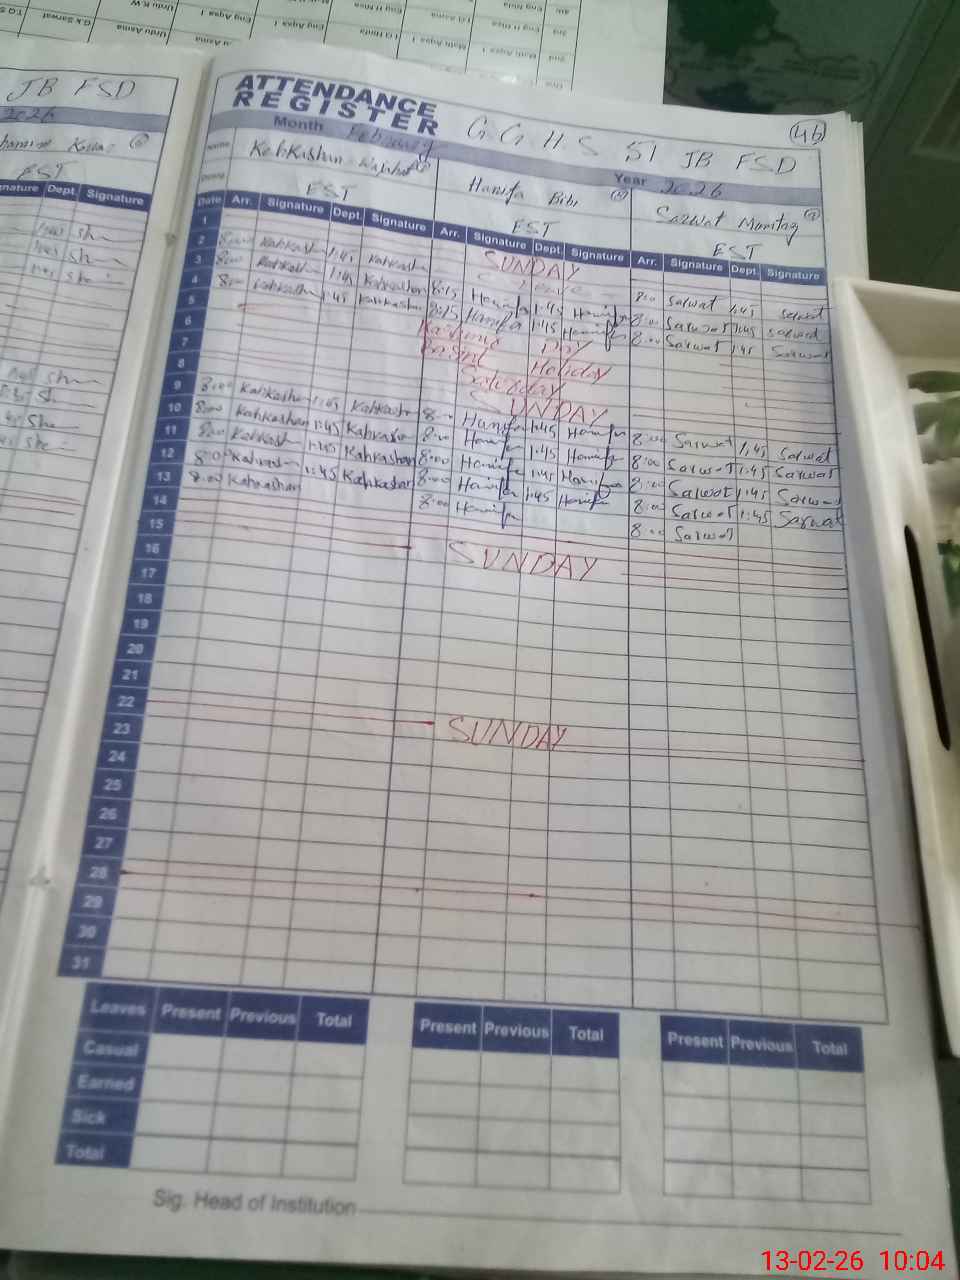 ATTENDANCE
REGISTER
G. G. H. S 51 JB FSD
46
Month February
Year 2026
Name
Kahkashan
Hanifa Bibi
Sarwat Mumtaz
EST
EST
EST
Date Arr. Signature Dept. Signature Arr. Signature Dept. Signature Arr. Signature Dept. Signature
1 SUNDAY
2 8:00 Kahkashan 1:45 Kahkashan Leave 8:00 Sarwat 1:45 Sarwat
3 8:00 Kahkashan 1:45 Kahkashan 8:15 Hanifa 1:45 Hanifa 8:00 Sarwat 1:45 Sarwat
4 8:00 Kahkashan 1:45 Kahkashan 8:15 Hanifa 1:45 Hanifa 8:00 Sarwat 1:45 Sarwat
5 Kashmir Day
6 Holiday
7 Saturday
8 SUNDAY
9 8:00 Kahkashan 1:45 Kahkashan 8:00 Hanifa 1:45 Hanifa 8:00 Sarwat 1:45 Sarwat
10 8:00 Kahkashan 1:45 Kahkashan 8:00 Hanifa 1:45 Hanifa 8:00 Sarwat 1:45 Sarwat
11 8:00 Kahkashan 1:45 Kahkashan 8:00 Hanifa 1:45 Hanifa 8:00 Sarwat 1:45 Sarwat
12 8:00 Kahkashan 1:45 Kahkashan 8:00 Hanifa 1:45 Hanifa 8:00 Sarwat 1:45 Sarwat
13 8:00 Kahkashan 8:00 Hanifa 8:00 Sarwat
14
15 SUNDAY
16
17
18
19
20
21
22 SUNDAY
23
24
25
26
27
28
29
30
31
Leaves Present Previous Total Present Previous Total Present Previous Total
Casual
Earned
Sick
Total
Sig. Head of Institution
JB FSD
2026
EST
Signature Dept. Signature
13-02-26 10:04